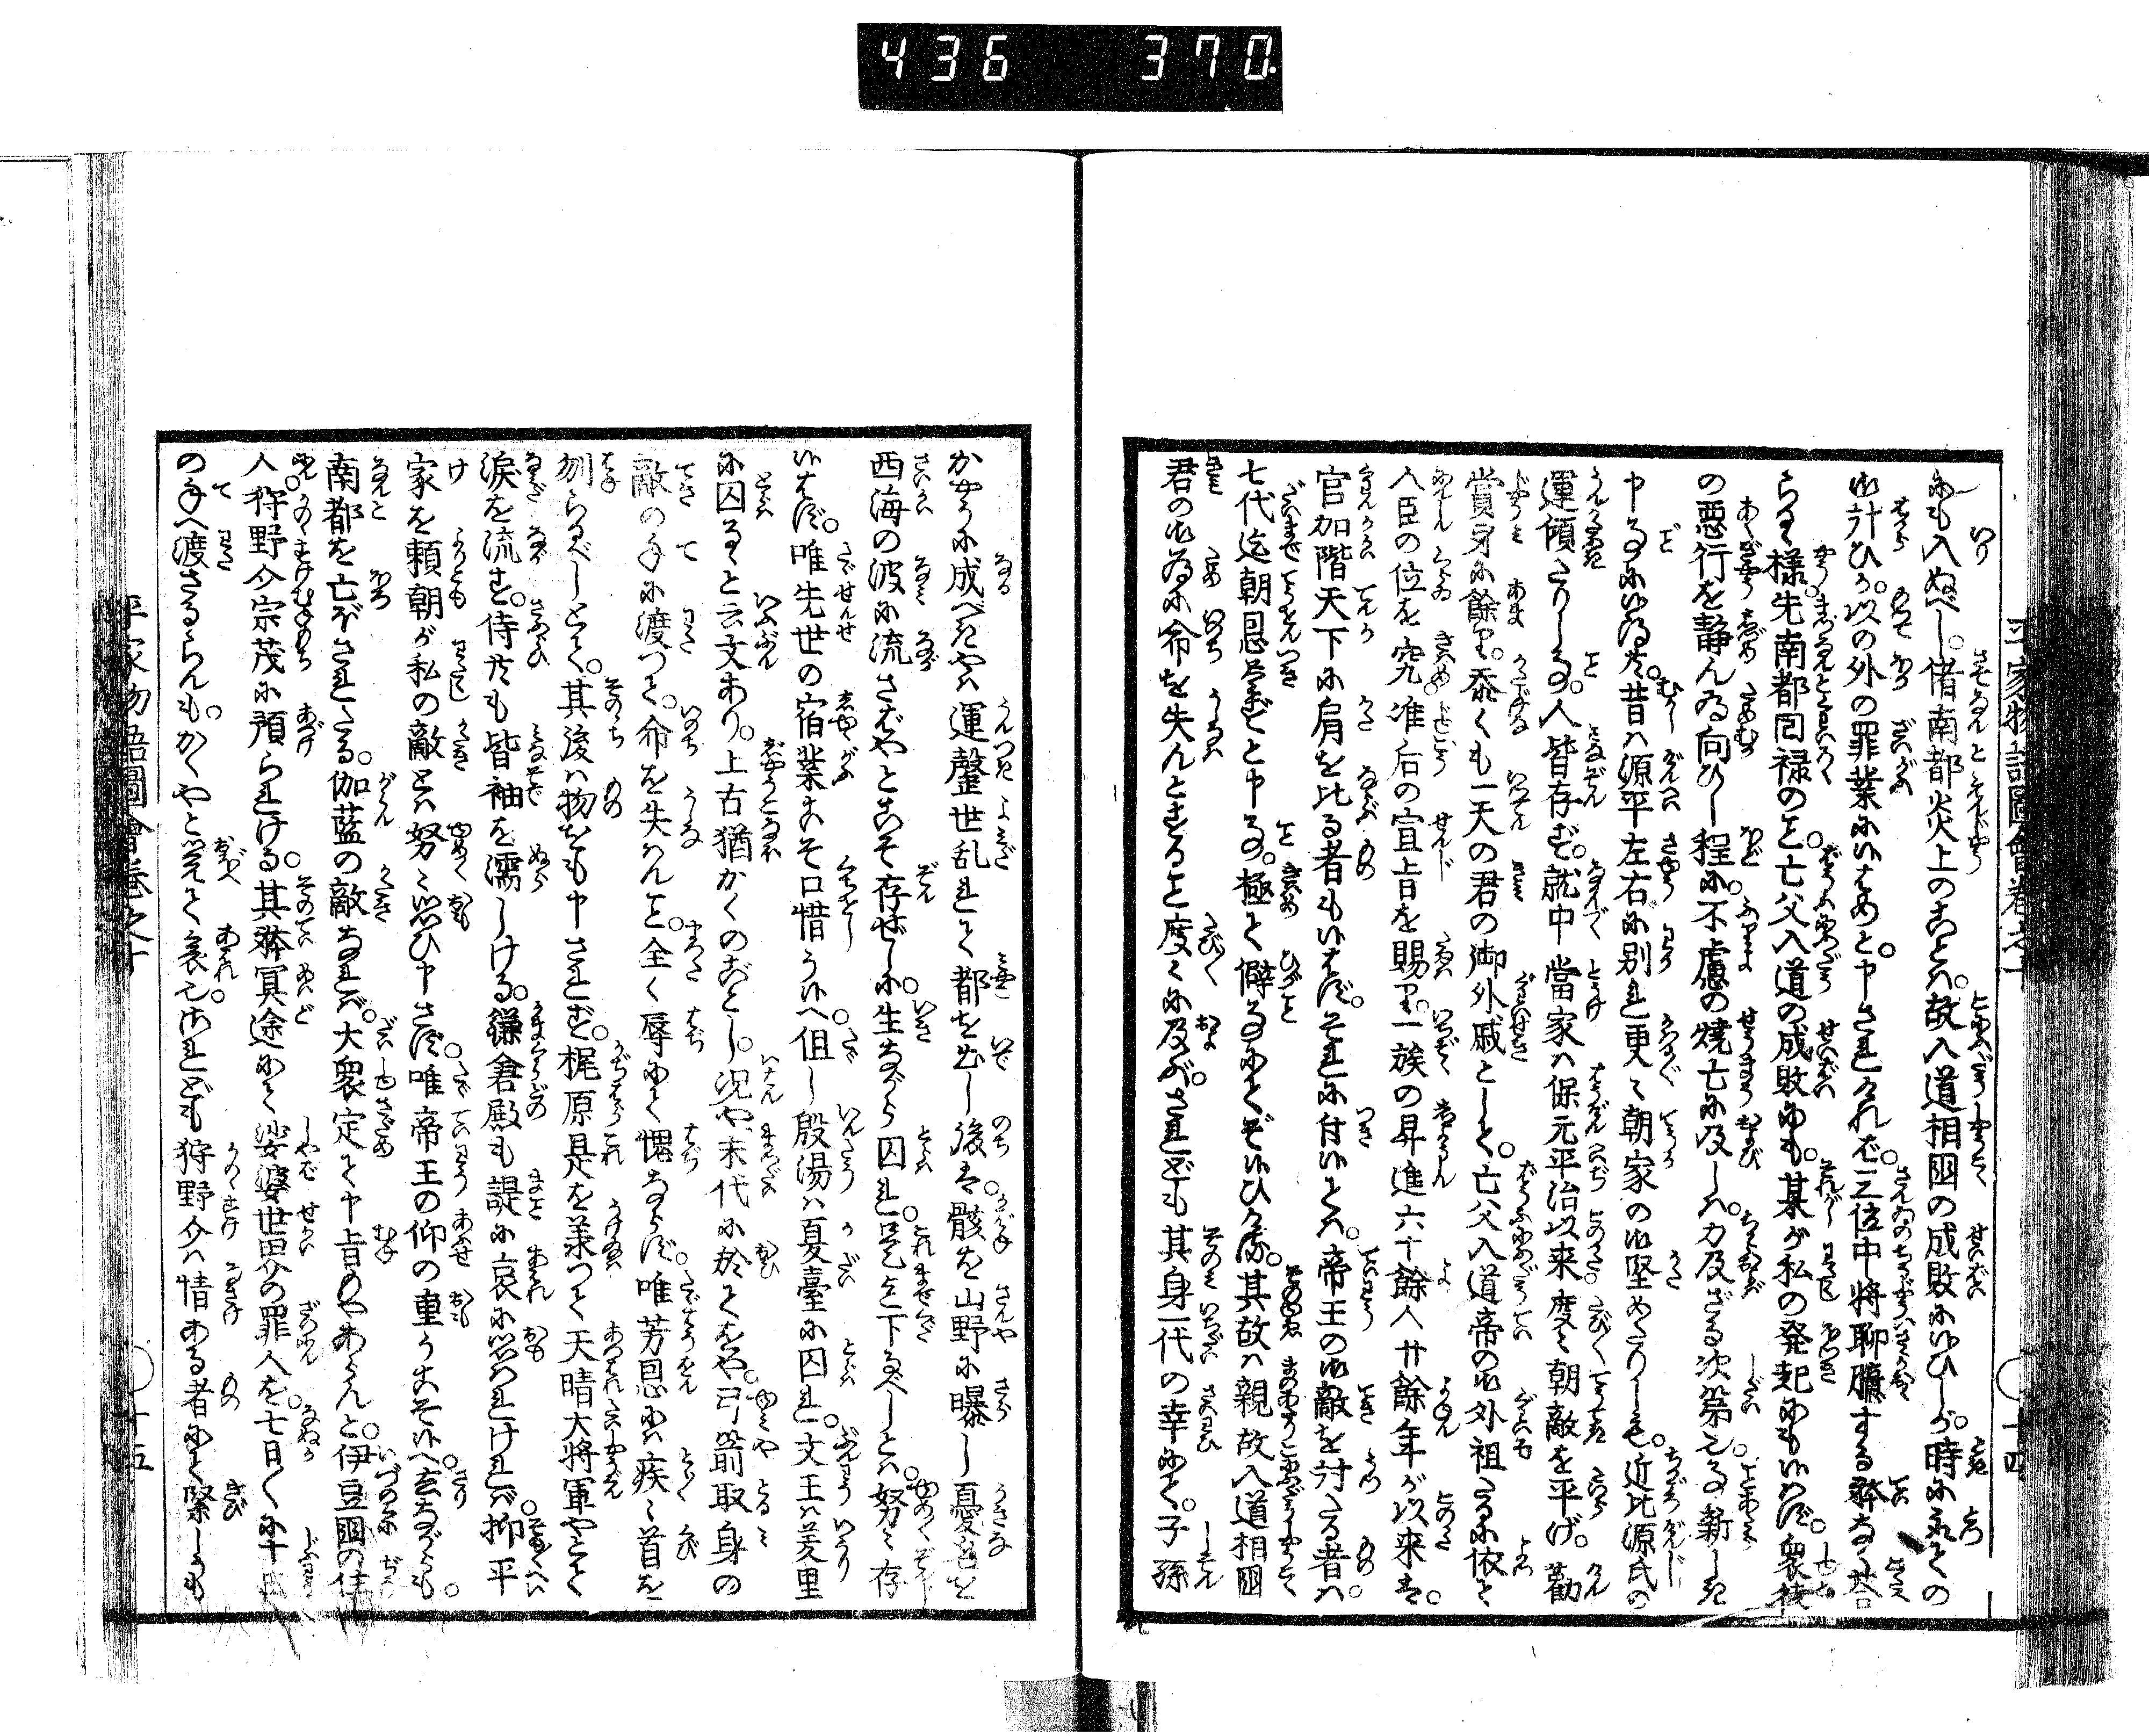 436 370
平家物語圖會巻之十
十四
にも入ぬべし。偖南都炎上のことハ。故入道相国の成敗に候ひしか。時にとりての
御計ひか。以の外の罪業に候はめと。申されけれバ。三位中将聊臆する躰なく答
らるゝ様。先南都回禄のこと。亡父入道の成敗にも。某が私の発起にも候ハず。衆徒
の悪行を静ん為向ひし程に。不慮の焼亡に及しハ。力及ざる次第也。事新しき
申事に候得共。昔ハ源平左右に別れ更々朝家の御堅めたりしも。近比源氏の
運傾きたりし事。人皆存ず。就中當家ハ保元平治以来度々朝敵を平げ。勸
賞身に餘り。忝くも一天の君の御外戚として。亡父入道帝の御外祖たるに依て
人臣の位を究。准后の宣旨を賜り。一族の昇進六十餘人廿餘年が以来は。
官加階天下に肩を比る者も候はず。それに付候ては。帝王の御敵を討たる者ハ
七代迄朝恩尽ずと申事。極て僻事にてぞ候ひける。其故ハ親故入道相国
君の御為に命を失んとすること度々に及ぶ。されども其身一代の幸にて。子孫
かやうに成べきやハ運盡世乱れて都を出し後は。骸を山野に曝し憂名を
西海の波に流さばやとこそ存ぜしに。生ながら囚れ。是迄下るべしとハ。努々存
候はず。唯先世の宿業こそ口惜う候へ。但し殷湯ハ夏臺に囚れ。文王ハ羑里
に囚るゝと云文あり。上古猶かくのごとし。况や末代に於てをや。弓箭取身の
敵の手に渡つて。命を失ハんこと。全く辱にて愧ならず。唯芳恩にハ疾々首を
刎らるべしとて。其後ハ物をも申されず。梶原是を承つて天晴大将軍やとて
涙を流す。侍共も皆袖を濡しける。鎌倉殿も誠に哀に思はれけれバ。抑平
家を頼朝が私の敵とハ努々思ひ申さず。唯帝王の仰の重うこそ候へ。去ながらも。
南都を亡ぼされたる。伽藍の敵なれバ。大衆定て申旨もやあらんと。伊豆国の住
人。狩野介宗茂に預られける。其躰冥途にて娑婆世界の罪人を。七日〳〵に十王
の手へ渡さるらんも。かくやと覚て哀也。されども狩野介ハ情ある者にて緊しうも
平家物語圖會巻之十
十五